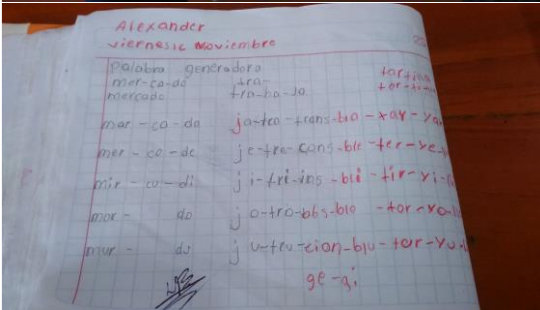 Alexander
viernes 1c noviembre
palabra generadora
mer-ca-do tra-
mercado tra-ba-jo
mar - ca - da ja-tra-trans-bla - xar - ya
mer - ce - de je-tre-cons-ble -ter-ye
mir - cu - di ji-tri-ins-bli - tir - yi
mor - do jo-tro-obs-blo - tor-yo
mur - du ju-tru-cion-blu- tar-yu
ge-gi